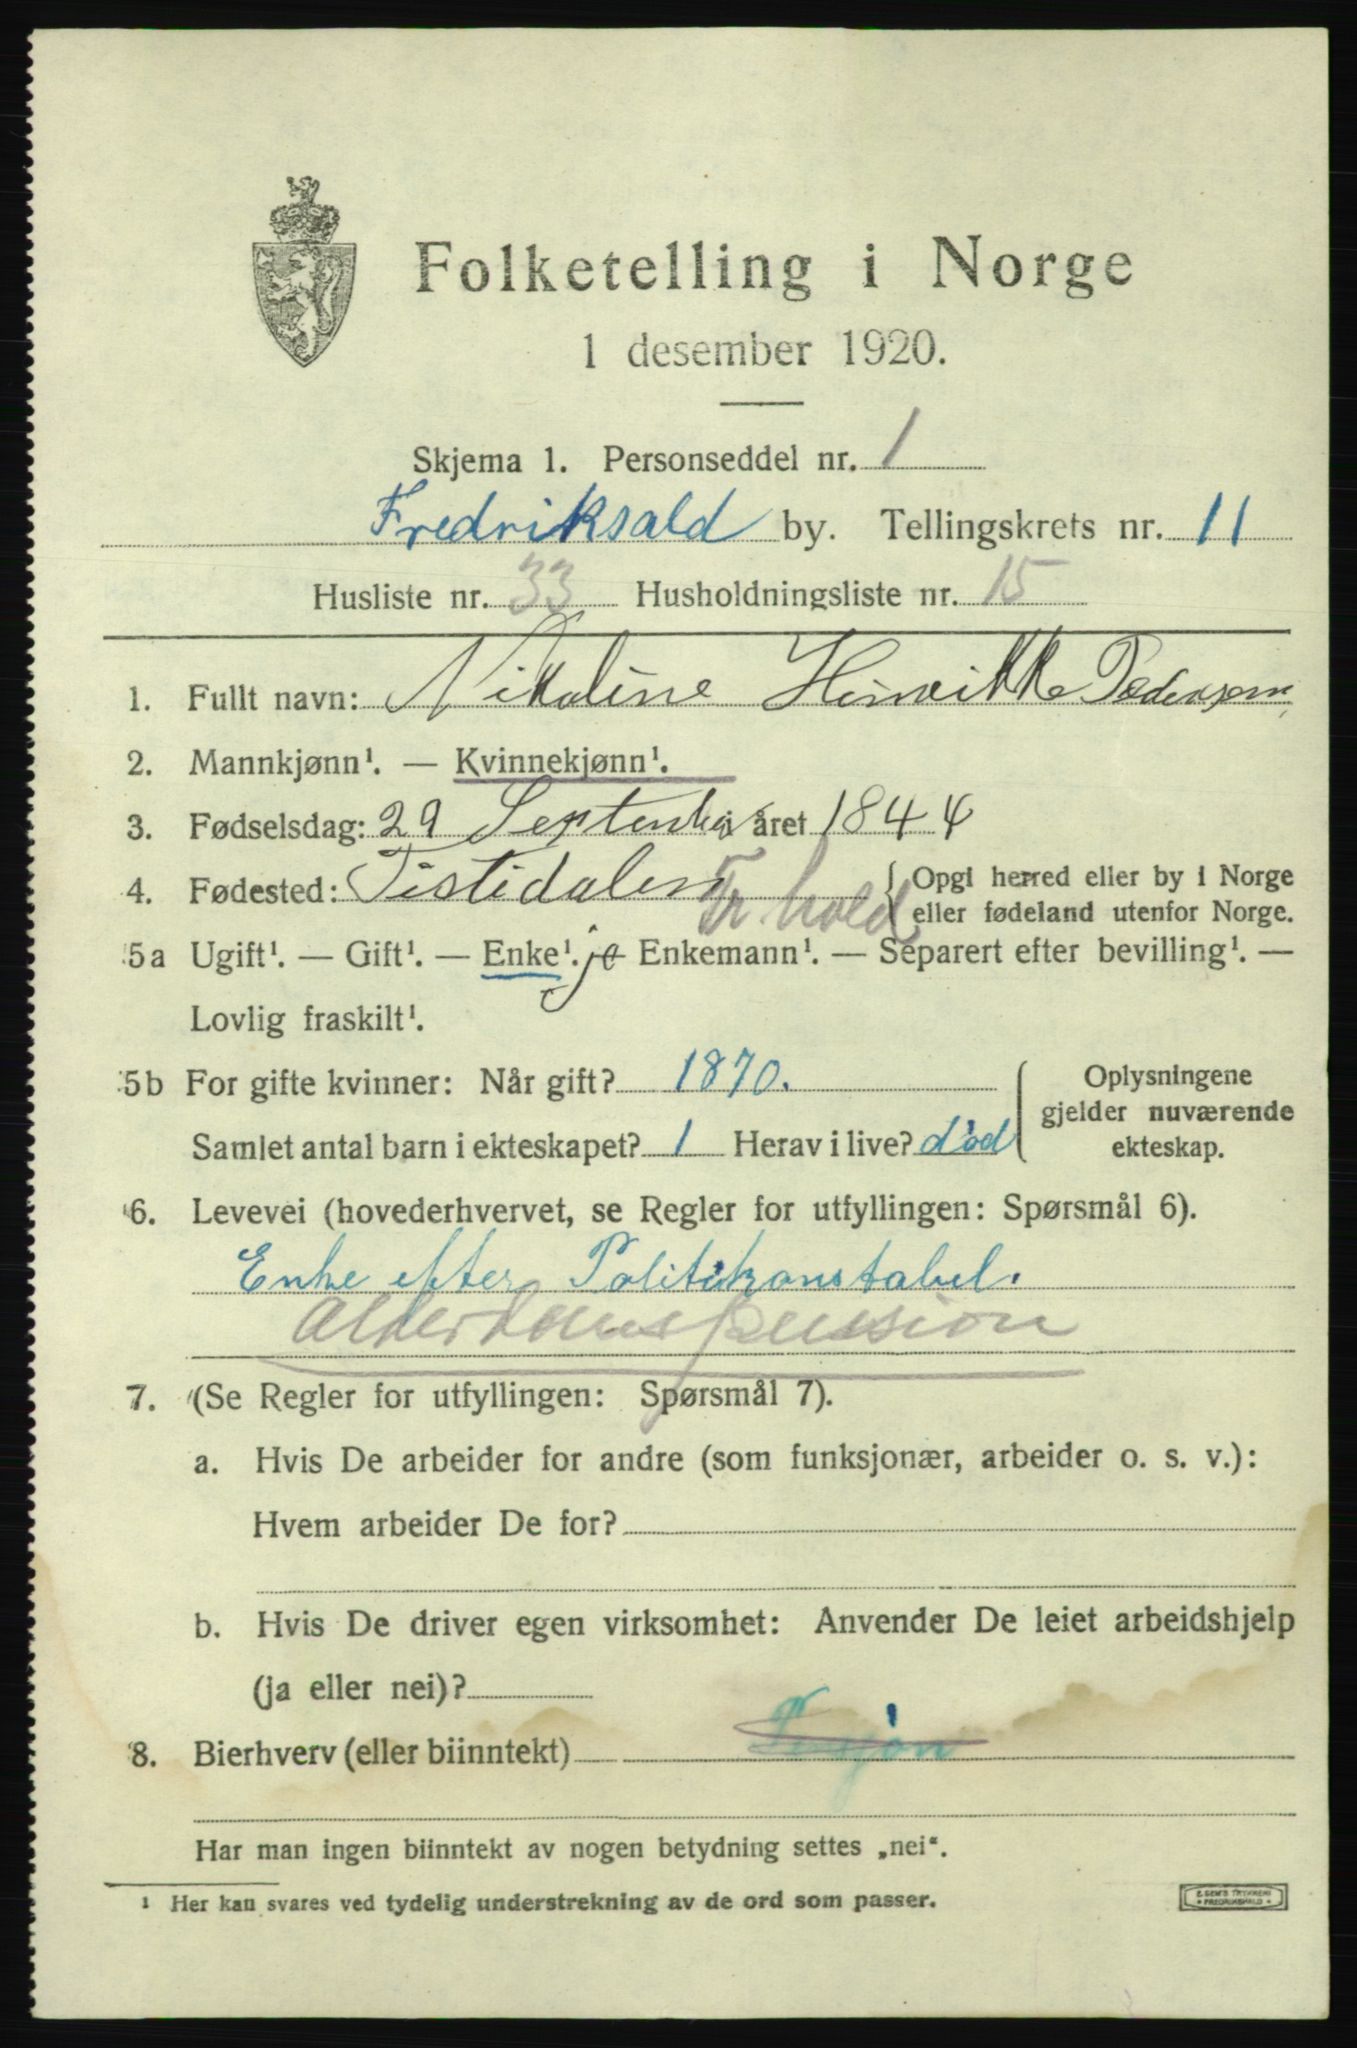 Folketelling i Norge
1 desember 1920.
Skjema 1. Personseddel nr. 1
Fredriksald by. Tellingskrets nr. 11
Husliste nr. 33 Husholdningsliste nr. 15
1. Fullt navn: Nikoline Hinrikke Pedersen,
2. Mannkjønn¹. — Kvinnekjønn¹.
3. Fødselsdag: 29 September året 1844
4. Fødested: Tistidalen Fr. hald { Opgi herred eller by i Norge
eller fødeland utenfor Norge.
5a Ugift¹. — Gift¹. — Enke¹. ja Enkemann¹. — Separert efter bevilling¹. —
Lovlig fraskilt¹.
5b For gifte kvinner: Når gift? 1870.
Samlet antal barn i ekteskapet? 1 Herav i live? død
Oplysningene
gjelder nuværende
ekteskap.
6. Levevei (hovederhvervet, se Regler for utfyllingen: Spørsmål 6).
Enke efter Politikonstabel.
Alderdomspension
7. (Se Regler for utfyllingen: Spørsmål 7).
a. Hvis De arbeider for andre (som funksjonær, arbeider o. s. v.):
Hvem arbeider De for?
b. Hvis De driver egen virksomhet: Anvender De leiet arbeidshjelp
(ja eller nei)?
8. Bierhverv (eller biinntekt)
Har man ingen biinntekt av nogen betydning settes „nei“.
¹ Her kan svares ved tydelig understrekning av de ord som passer.
E. SEM'S TRYKKERI
• FREDRIKSHALD •